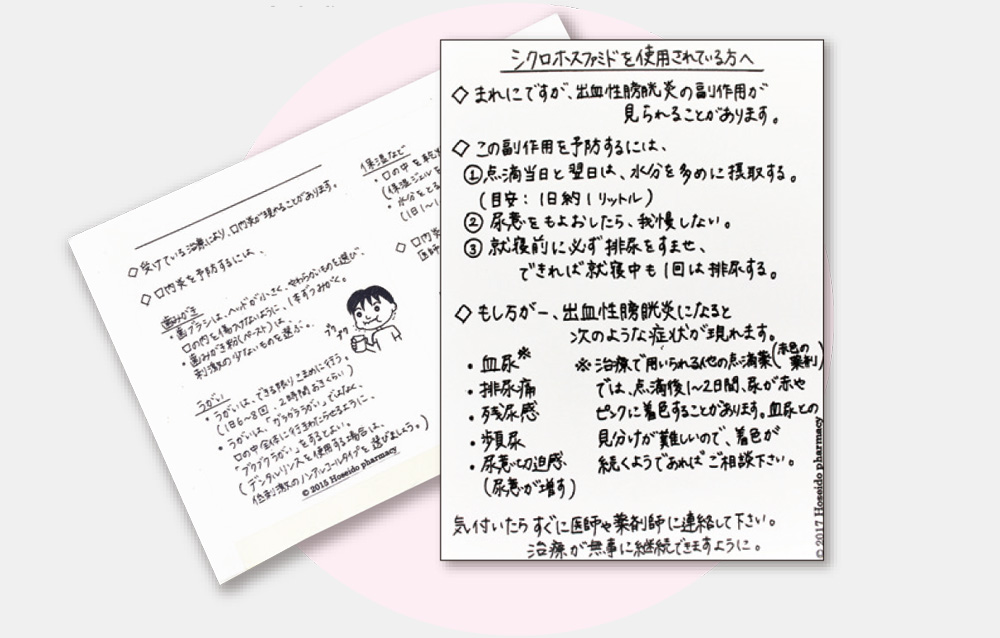 シクロホスファミドを使用されている方へ
◇ まれにですが、出血性膀胱炎の副作用が
見られることがあります。
◇ この副作用を予防するには、
①点滴当日と翌日は、水分を多めに摂取する。
(目安：1日約1リットル)
② 尿意をもよおしたら、我慢しない。
③ 就寝前に必ず排尿をすませ、
できれば就寝中も1回は排尿する。
◇ もし万が一、出血性膀胱炎になると
次のような症状が現れます。
・血尿※
・排尿痛
・残尿感
・頻尿
・尿意切迫感
(尿意が増す)
※ 治療で用いられる他の点滴薬(赤色の薬剤)
では、点滴後1〜2日間、尿が赤や
ピンクに着色することがあります。血尿との
見分けが難しいので、着色が
続くようであればご相談下さい。
気付いたらすぐに医師や薬剤師に連絡して下さい。
治療が無事に継続できますように。
© 2017 Hoseido pharmacy
◇ 受けている治療により、口内炎が現れることがあります。
◇ 口内炎を予防するには、
歯みがき
・歯ブラシは、ヘッドが小さく、やわらかいものを選び、
口の内を傷つけないように、1本ずつみがく。
・歯みがき粉(ペースト)は、
刺激の少ないものを選ぶ。
うがい
・うがいは、できる限りこまめに行う。
(1日6〜8回、2時間おきくらい)
・うがいは、「ガラガラうがい」ではなく、
口の中全体に行きわたらせるように、
「ブクブクうがい」をするとよい。
(デンタルリンスを使用する場合は、
低刺激のノンアルコールタイプを選びましょう。)
ブク
ブク
© 2015 Hoseido pharmacy
保湿など
・口の中を乾
(保湿ジェルを
・水分をとる
(1日1〜1
◇ 口内炎
医師